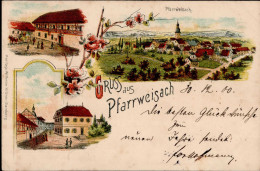 Pfarrweisach.
Gruss aus
Pfarrweisach
30. 12. 00.
Die besten Glückwünsche
zum
neuen Jahre sendet